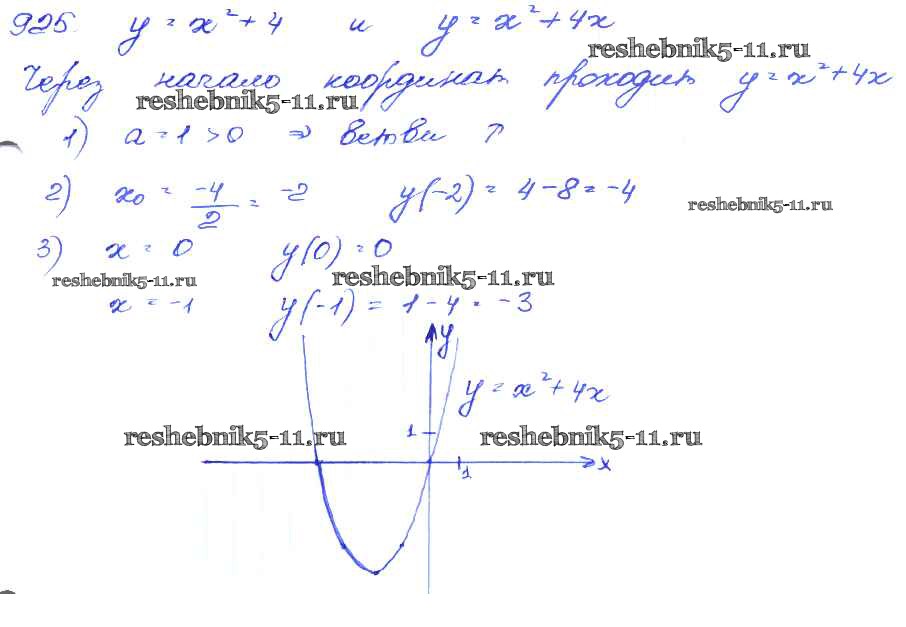 925. y = x² + 4 и y = x² + 4x
reshebnik5-11.ru
Через начало координат проходит y = x² + 4x
reshebnik5-11.ru
1) a = 1 > 0 ⇒ ветви ↑
2) x₀ = -4/2 = -2 y(-2) = 4 - 8 = -4
reshebnik5-11.ru
3) x = 0 y(0) = 0
reshebnik5-11.ru reshebnik5-11.ru
x = -1 y(-1) = 1 - 4 = -3
y
y = x² + 4x
reshebnik5-11.ru 1 reshebnik5-11.ru
1 x